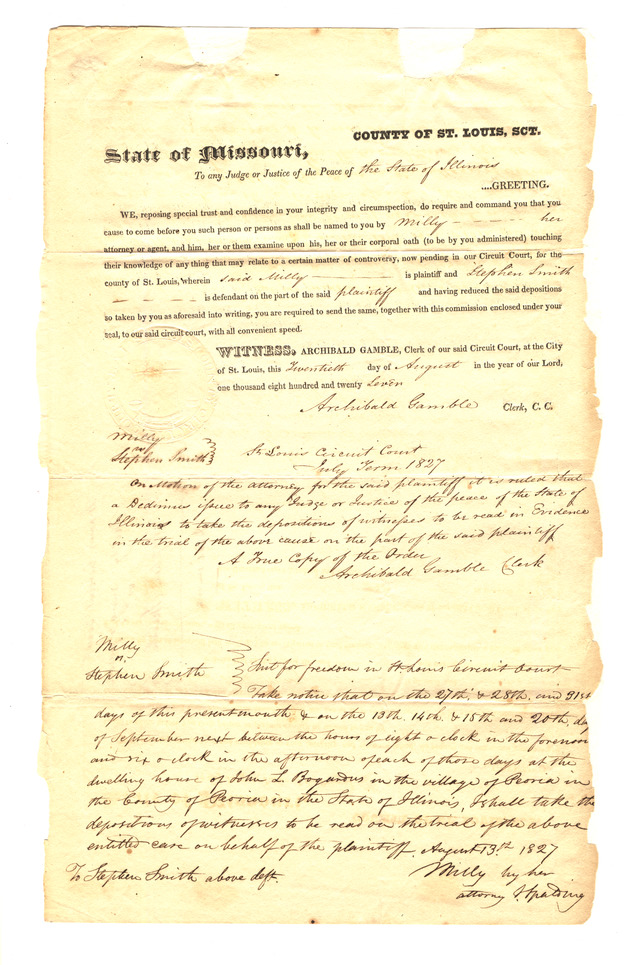 COUNTY OF ST. LOUIS, SCT.
State of Missouri,
To any Judge or Justice of the Peace of the State of Illinois
....GREETING.
WE, reposing special trust and confidence in your integrity and circumspection, do require and command you that you
cause to come before you such person or persons as shall be named to you by Milly - - - - her
attorney or agent, and him, her or them examine upon his, her or their corporal oath (to be by you administered) touching
their knowledge of any thing that may relate to a certain matter of controversy, now pending in our Circuit Court, for the
county of St. Louis, wherein said Milly is plaintiff and Stephen Smith
- - - - is defendant on the part of the said plaintiff and having reduced the said depositions
so taken by you as aforesaid into writing, you are required to send the same, together with this commission enclosed under your
seal, to our said circuit court, with all convenient speed.
WITNESS, ARCHIBALD GAMBLE, Clerk of our said Circuit Court, at the City
of St. Louis, this Twentieth day of August in the year of our Lord,
one thousand eight hundred and twenty Seven
Archibald Gamble Clerk, C. C.
Milly
vs
Stephen Smith } St Louis Circuit Court
July Term 1827
On Motion of the attorney for the said plaintiff it is ruled that
a Dedimus issue to any Judge or Justice of the peace of the State of
Illinois to take the depositions of witnesses to be read in Evidence
in the trial of the above cause on the part of the said plaintiff
A True Copy of the Order
Archibald Gamble Clerk
Milly
vs.
Stephen Smith } Suit for freedom in St. Louis Circuit Court
Take notice that on the 27th. & 28th. and 31st
days of this present month & on the 13th. 14th. & 15th and 20th. day
of September next between the hours of eight o clock in the forenoon
and six o clock in the afternoon of each of those days at the
dwelling house of John L. Bogardus in the village of Peoria in
the County of Peoria in the State of Illinois, I shall take the
depositions of witnesses to be read on the trial of the above
entitled case on behalf of the plaintiff. August 13th. 1827
To Stephen Smith above deft. Milly by her
attorney J Spalding